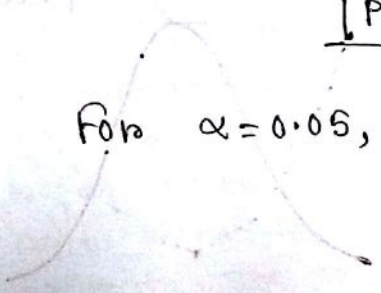 [P
For α = 0.05,